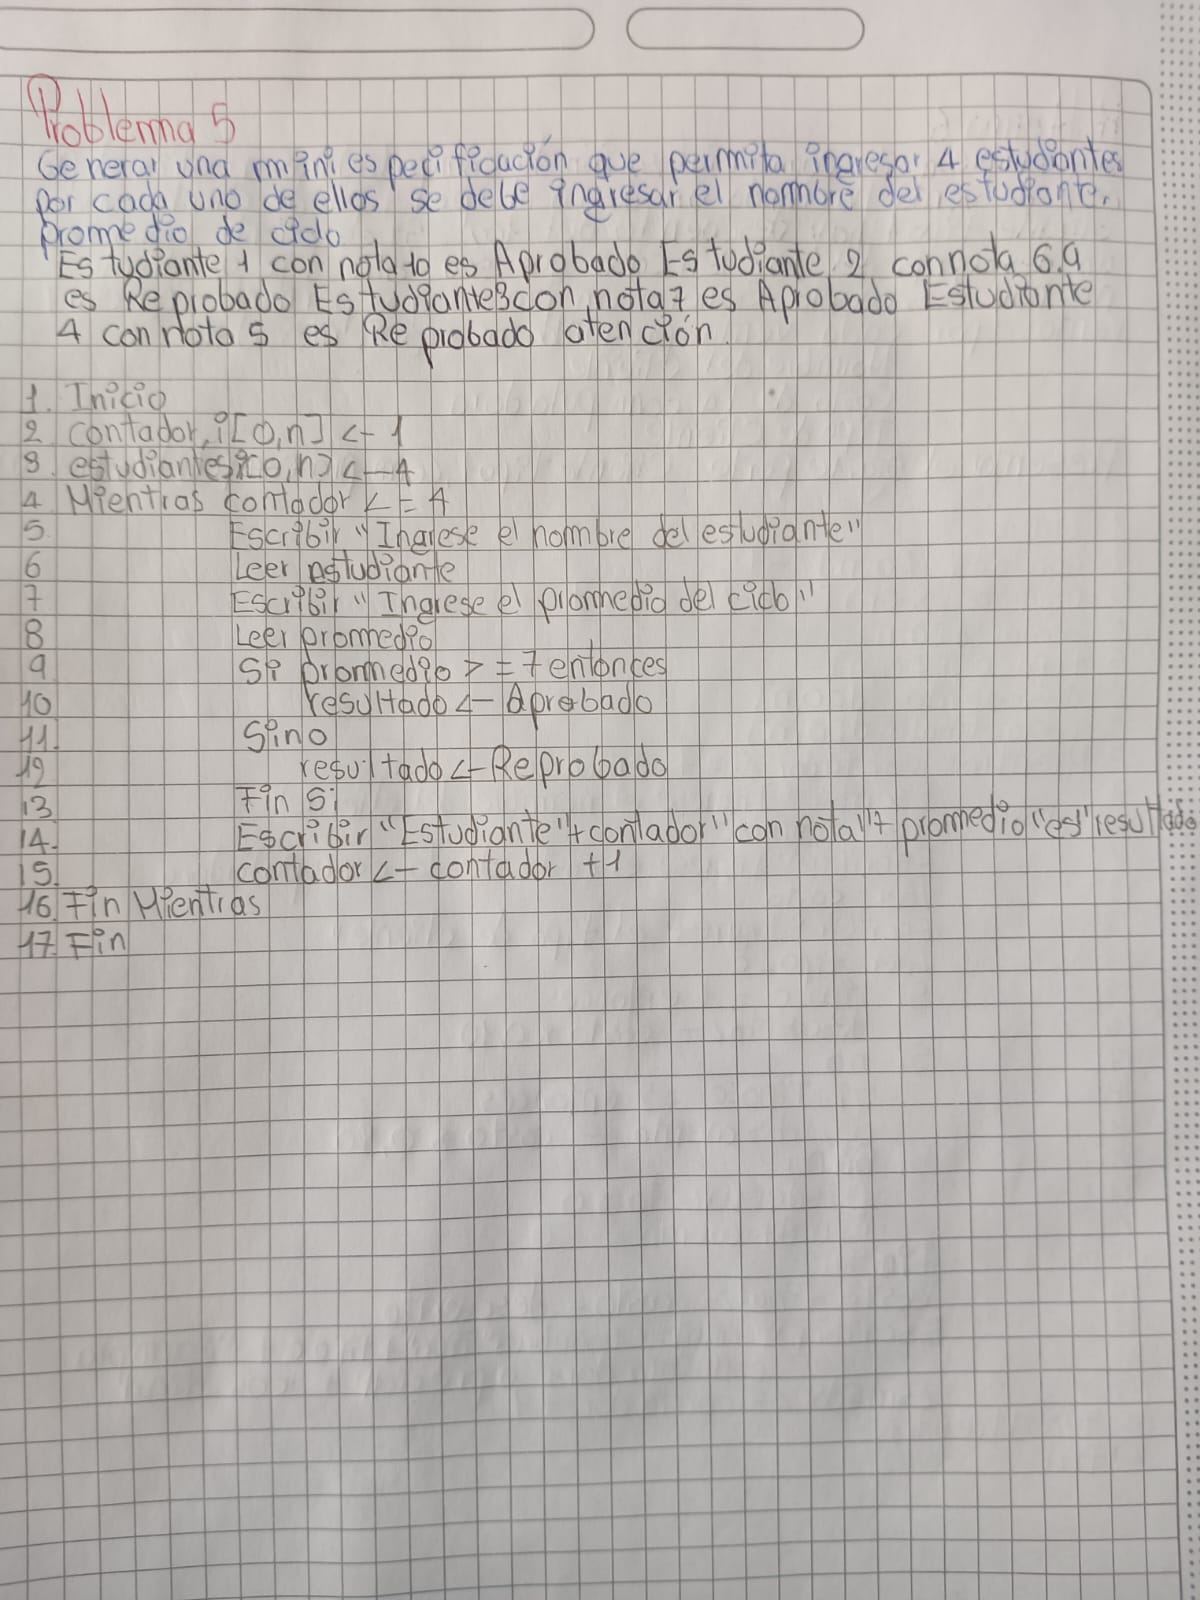 Problema 5
Generar una mini especificación que permita ingresar 4 estudiantes
por cada uno de ellos se debe ingresar el nombre del estudiante,
promedio de ciclo
Estudiante 1 con nota 10 es Aprobado Estudiante 2 con nota 6.9
es Reprobado Estudiante3 con nota 7 es Aprobado Estudiante
4 con nota 5 es Reprobado atención
1. Inicio
2 contador,i[0,n] <- 1
3. estudiantes,i[0,n] <- 4
4 Mientras contador <= 4
5 Escribir "Ingrese el nombre del estudiante"
6 Leer estudiante
7 Escribir "Ingrese el promedio del ciclo"
8 Leer promedio
9 Si promedio >= 7 entonces
10 resultado <- Aprobado
11. Sino
12 resultado <- Reprobado
13 Fin Si
14. Escribir "Estudiante"+contador"con nota"+promedio"es"resultado
15. contador <- contador +1
16. Fin Mientras
17. Fin